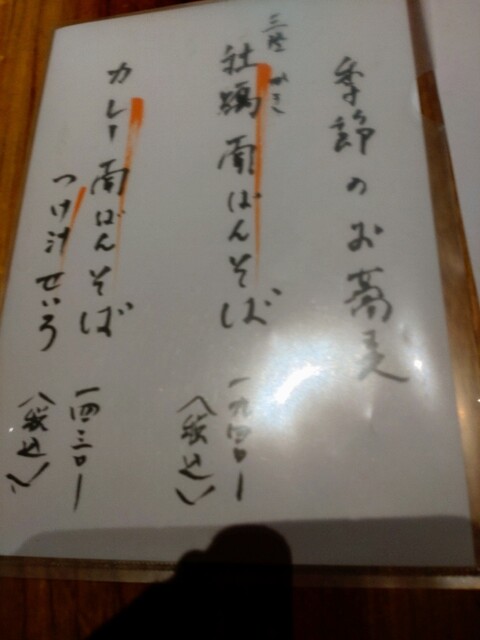 季節のお蕎麦
三陸 かき
牡蠣南ばんそば
一九四〇ー
(税込)
カレー南ばんそば
つけ汁せいろ
一四三〇ー
(税込)